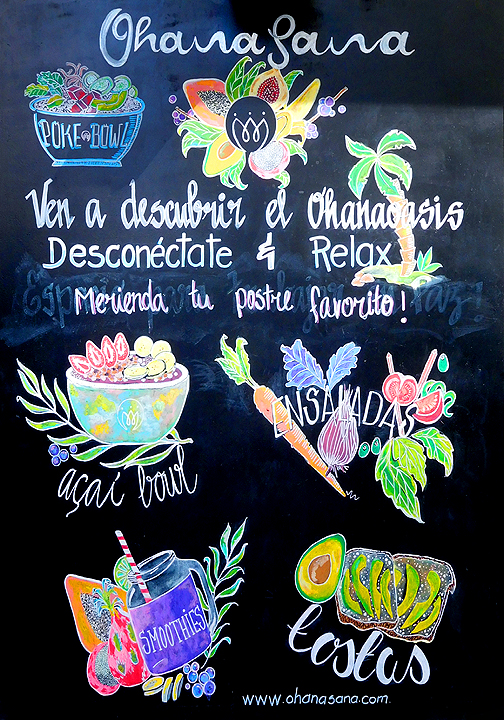 Ohana Sana
POKE BOWL
Ven a descubrir el Ohanaoasis
Desconéctate & Relax
Merienda tu postre favorito!
açaí bowl
ENSALADAS
SMOOTHIES
tostas
www.ohanasana.com